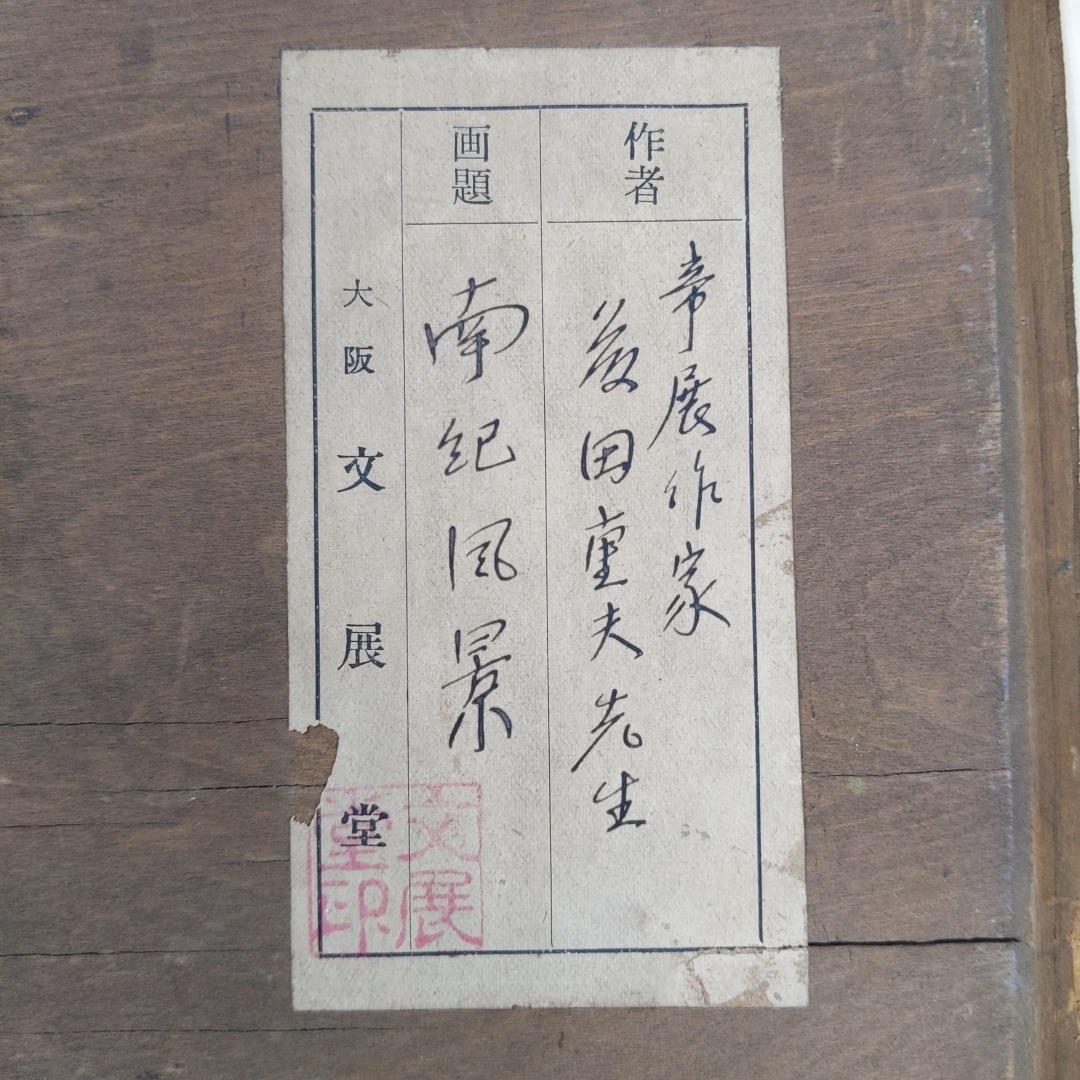 作者
帝展作家
田重夫先生
画題
南紀風景
大阪文展堂
文展堂印